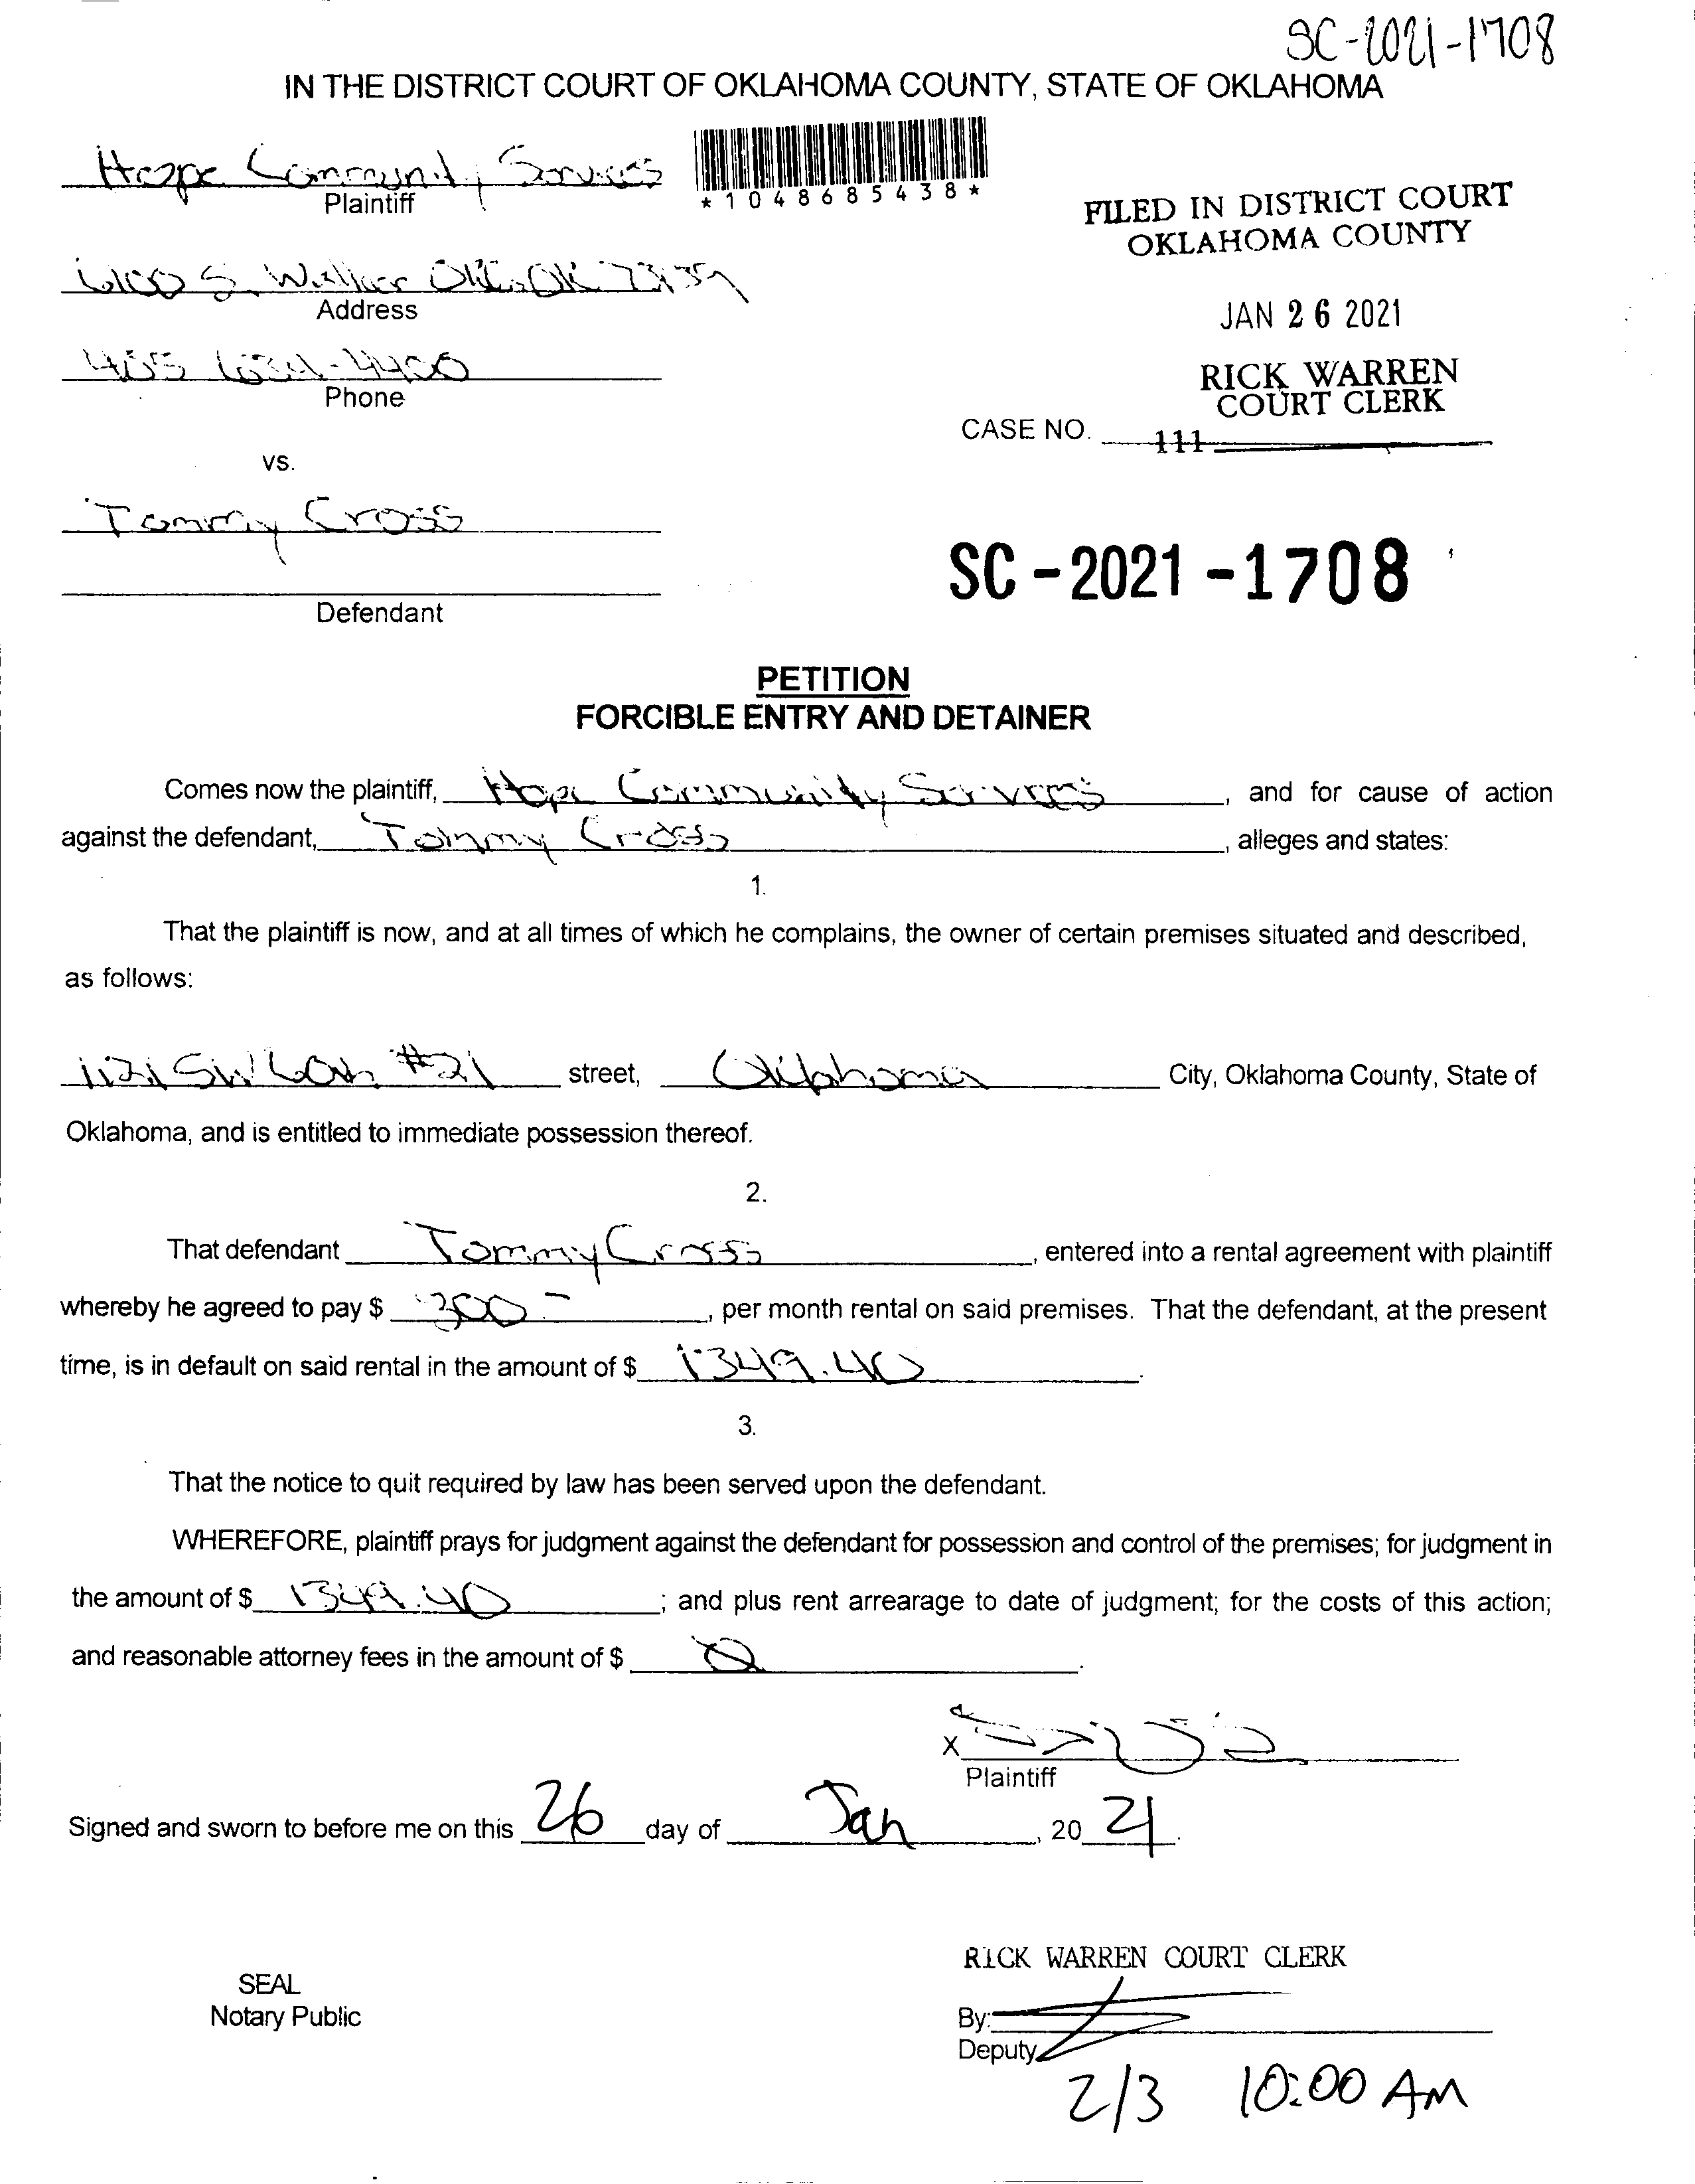 SC-2021-1708
IN THE DISTRICT COURT OF OKLAHOMA COUNTY, STATE OF OKLAHOMA
Hope Community Services
Plaintiff
*1048685438*
FILED IN DISTRICT COURT
OKLAHOMA COUNTY
6100 S. Walker OKC, OK 73139
Address
JAN 26 2021
405 634-4400
Phone
RICK WARREN
COURT CLERK
CASE NO. 111
vs.
Tommy Cross
SC-2021-1708
Defendant
PETITION
FORCIBLE ENTRY AND DETAINER
Comes now the plaintiff, Hope Community Services, and for cause of action
against the defendant, Tommy Cross, alleges and states:
1.
That the plaintiff is now, and at all times of which he complains, the owner of certain premises situated and described,
as follows:
1121 SW 60th #21 street, Oklahoma City, Oklahoma County, State of
Oklahoma, and is entitled to immediate possession thereof.
2.
That defendant Tommy Cross, entered into a rental agreement with plaintiff
whereby he agreed to pay $ 300 -, per month rental on said premises. That the defendant, at the present
time, is in default on said rental in the amount of $ 1349.40.
3.
That the notice to quit required by law has been served upon the defendant.
WHEREFORE, plaintiff prays for judgment against the defendant for possession and control of the premises; for judgment in
the amount of $ 1349.40; and plus rent arrearage to date of judgment; for the costs of this action;
and reasonable attorney fees in the amount of $ 0.
X
Plaintiff
Signed and sworn to before me on this 26 day of Jan, 20 21.
RICK WARREN COURT CLERK
SEAL
Notary Public
By:
Deputy
2/3 10:00 AM